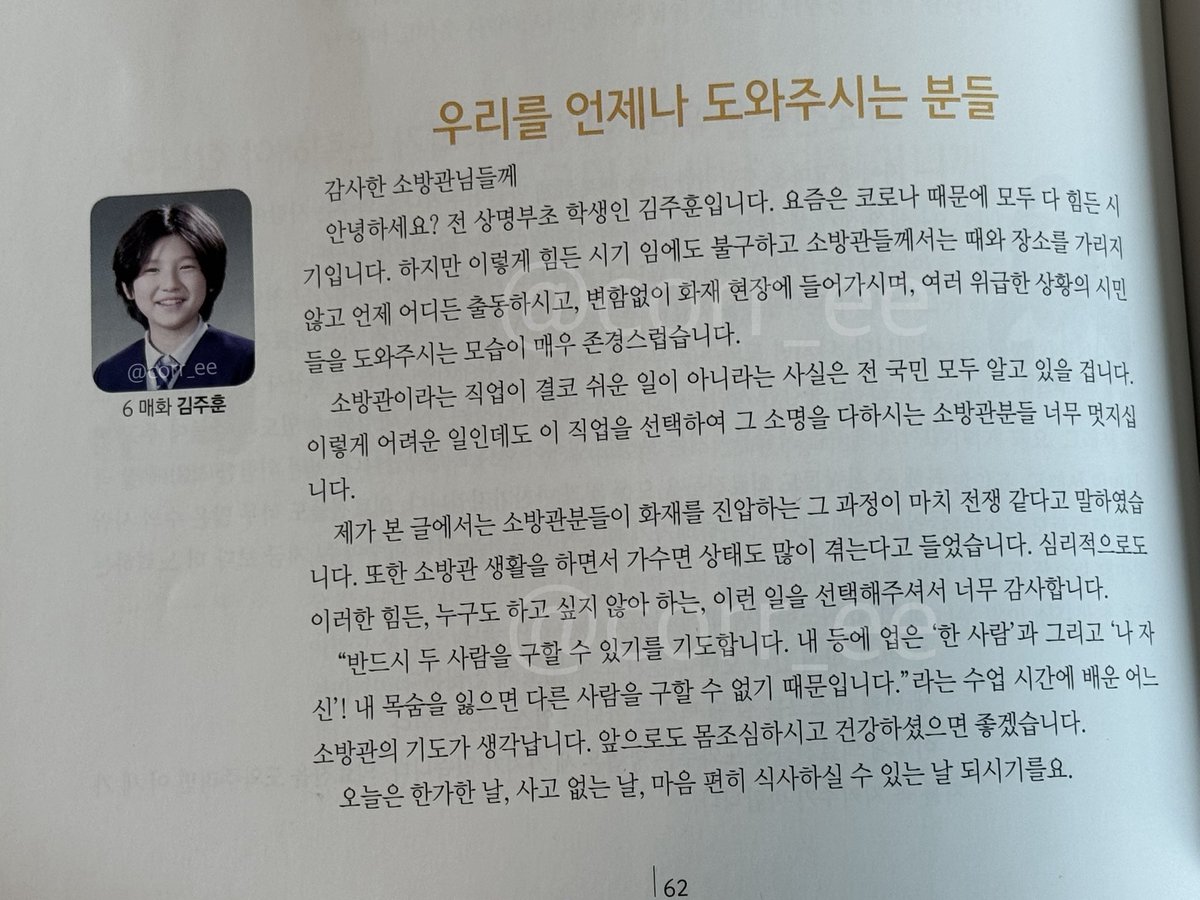 우리를 언제나 도와주시는 분들
감사한 소방관님들께
안녕하세요? 전 상명부초 학생인 김주훈입니다. 요즘은 코로나 때문에 모두 다 힘든 시
기입니다. 하지만 이렇게 힘든 시기 임에도 불구하고 소방관들께서는 때와 장소를 가리지
않고 언제 어디든 출동하시고, 변함없이 화재 현장에 들어가시며, 여러 위급한 상황의 시민
들을 도와주시는 모습이 매우 존경스럽습니다.
소방관이라는 직업이 결코 쉬운 일이 아니라는 사실은 전 국민 모두 알고 있을 겁니다.
이렇게 어려운 일인데도 이 직업을 선택하여 그 소명을 다하시는 소방관분들 너무 멋지십
니다.
제가 본 글에서는 소방관분들이 화재를 진압하는 그 과정이 마치 전쟁 같다고 말하였습
니다. 또한 소방관 생활을 하면서 가수면 상태도 많이 겪는다고 들었습니다. 심리적으로도
이러한 힘든, 누구도 하고 싶지 않아 하는, 이런 일을 선택해주셔서 너무 감사합니다.
“반드시 두 사람을 구할 수 있기를 기도합니다. 내 등에 업은 ‘한 사람’과 그리고 ‘나 자
신’! 내 목숨을 잃으면 다른 사람을 구할 수 없기 때문입니다.”라는 수업 시간에 배운 어느
소방관의 기도가 생각납니다. 앞으로도 몸조심하시고 건강하셨으면 좋겠습니다.
오늘은 한가한 날, 사고 없는 날, 마음 편히 식사하실 수 있는 날 되시기를요.
@corr_ee
6 매화 김주훈
@corr_ee
@corr_ee
62